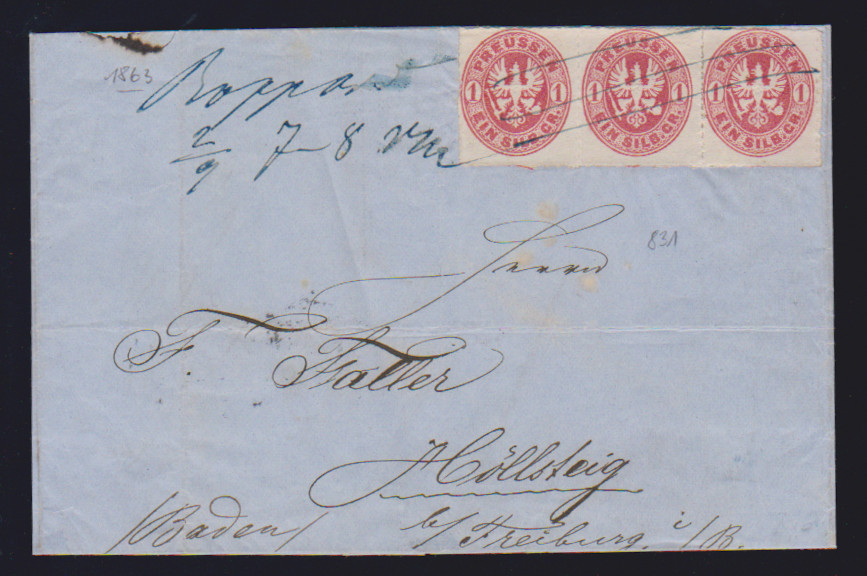 1863
Boppard
2/9 7-8 Vm
PREUSSEN
1 1
EIN SILB.GR.
PREUSSEN
1 1
EIN SILB.GR.
PREUSSEN
1 1
EIN SILB.GR.
831
Herrn
F. Faller
Höllsteig
/Baden/ b/Freiburg. i/B.